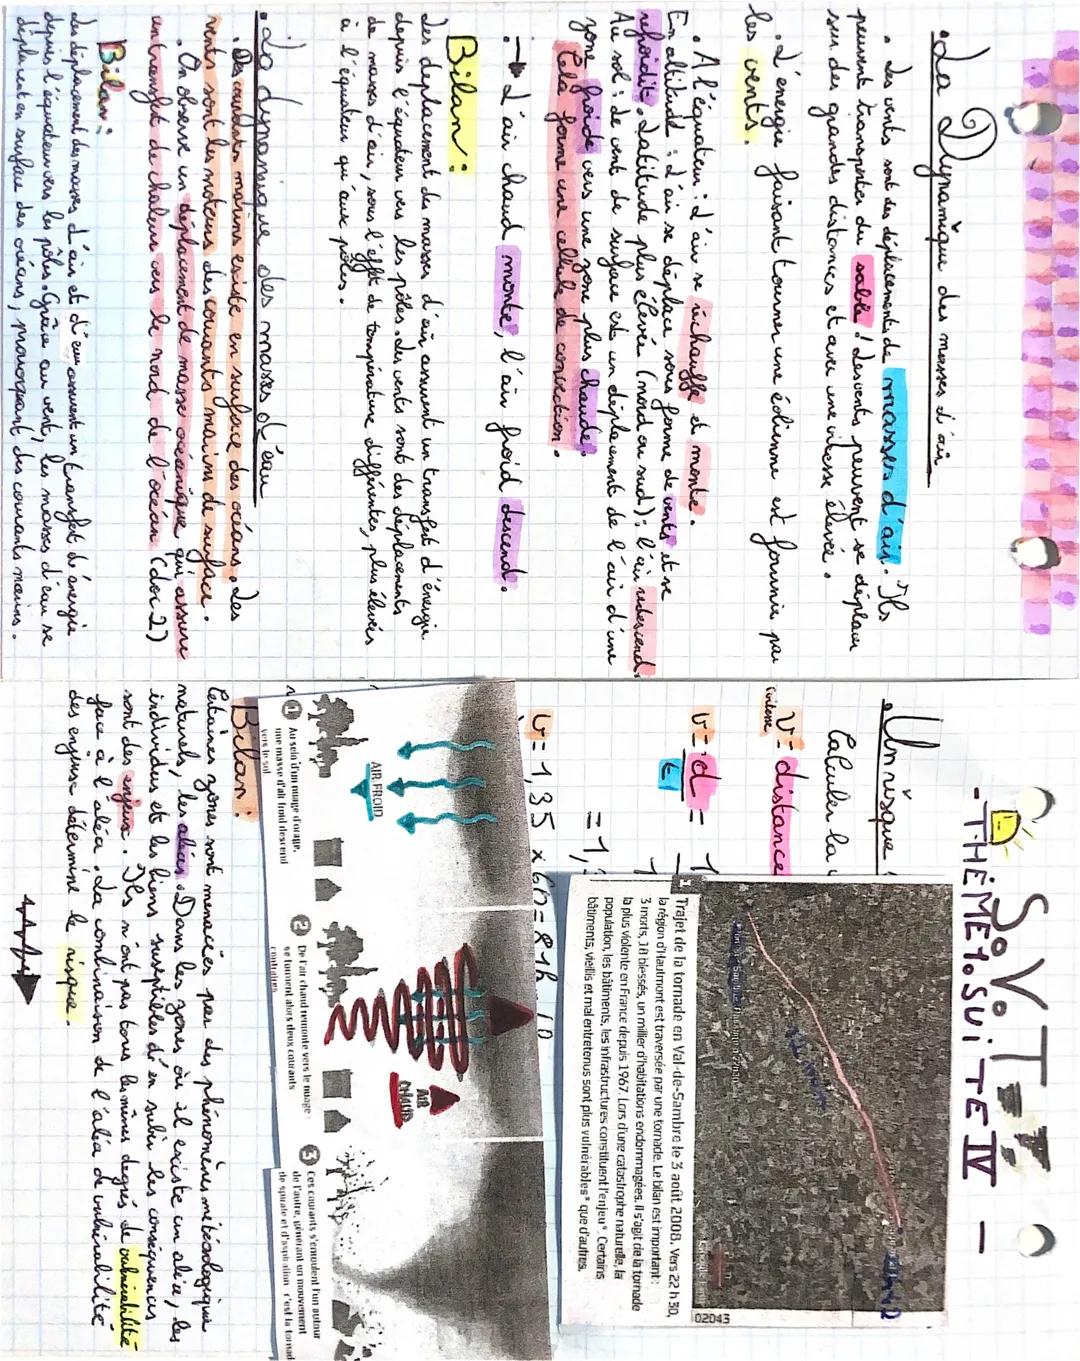 S.V.T
- THÈME 1. SUITE IV -
. La Dynamique des masses d'air
. Les vents sont des déplacements de masses d'air. Ils
peuvent transporter du sable! Les vents peuvent se déplacer
sur des grandes distances et avec une vitesse élevée.
. L'énergie faisant tourner une éolienne est fournie par
les vents.
. A l'équateur : L'air se réchauffe et monte.
En altitude : L'air se déplace sous forme de vents et se
refroidit. Latitude plus élevée (nord ou sud) : l'air redescend.
Au sol : Le vent de surface est un déplacement de l'air d'une
zone froide vers une zone plus chaude.
Cela forme une cellule de convection.
. → L'air chaud monte, l'air froid descend.
Bilan :
Les déplacement de masses d'air, assurent un transfert d'énergie
depuis l'équateur vers les pôles. Les vents sont des déplacements
de masses d'air, sous l'effet de température différentes, plus élevées
à l'équateur qu'aux pôles.
. La dynamique des masses d'eau
. Des courants marins existe en surface des océans. Les
vents sont les moteurs des courants marins de surface.
. On observe un déplacement de masse océanique qui assure
un transfert de chaleur vers le nord de l'océan (doc 2)
Bilan :
Les déplacement de masses d'air et d'eau assurent un transfert de énergie
depuis l'équateur vers les pôles. Grâce au vent, les masses d'eau se
déplacent en surface des océans, provoquant des courants marins.
. Un risque
Calculer la
V = distance
vitesse
V = d = 1
t 1
= 1,
V = 1,35 x 60 = 81
Trajet de la tornade en Val-de-Sambre le 3 août 2008. Vers 22 h 30,
la région d'Hautmont est traversée par une tornade. Le bilan est important :
3 morts, 18 blessés, un millier d'habitations endommagées. Il s'agit de la tornade
la plus violente en France depuis 1967. Lors d'une catastrophe naturelle, la
population, les bâtiments, les infrastructures constituent l'enjeu*. Certains
bâtiments, vieillis et mal entretenus sont plus vulnérables* que d'autres.
02043
AIR FROID
AIR CHAUD
1 Au sein d'un nuage d'orage,
une masse d'air froid descend
vers le sol
2 De l'air chaud remonte vers le nuage :
se forment alors deux courants
contraires
3 Ces courants s'enroulent l'un autour
de l'autre, générant un mouvement
de spirale et d'aspiration : c'est la tornad
Bilan :
Certaines zones sont menacées par des phénomènes météorologique
naturels, les aléas. Dans les zones où il existe un aléa, les
individus et les biens susceptibles d'en subir les conséquences
sont des enjeux. Ils n'ont pas tous les mêmes degrés de vulnérabilité
face à l'aléa. La combinaison de l'aléa et vulnérabilité
des enjeux détermine le risque.